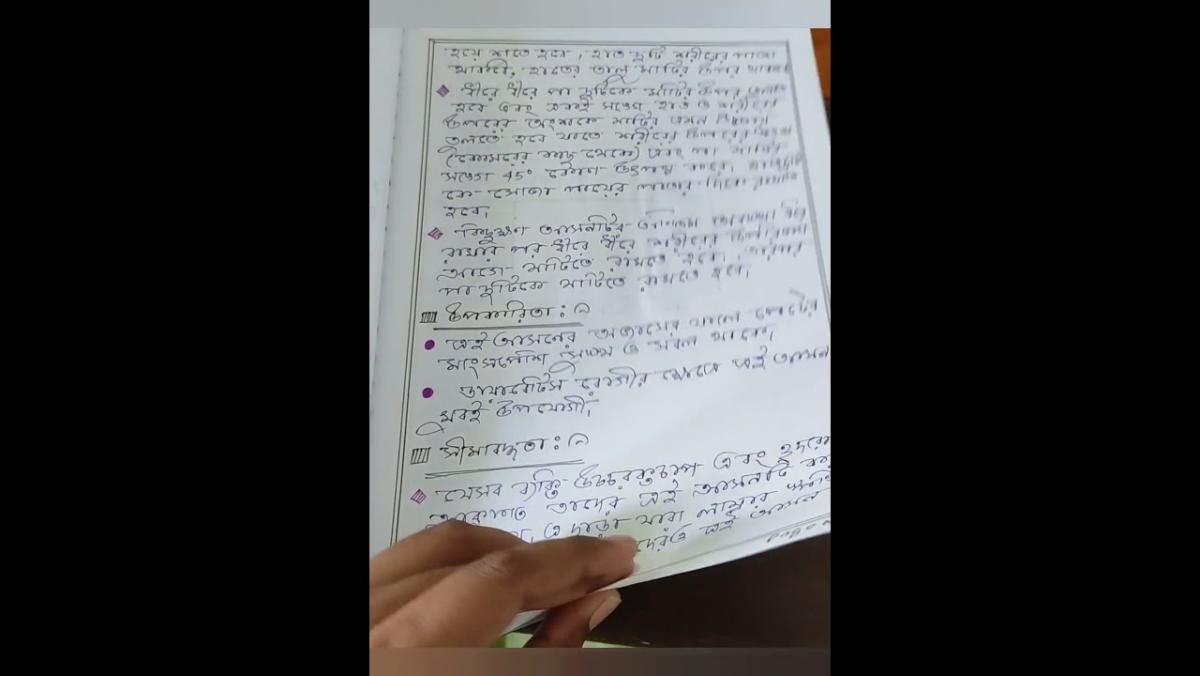 হয়ে শুতে হবে, হাত দুটি শরীরের পাশে
থাকবে, হাতের তালু মাটির উপর থাকবে
ধীরে ধীরে পা দুটিকে মাটির উপর তুলতে
হবে এবং একই সঙ্গে হাত ও শরীরের
উপরের অংশকে মাটির এমন উচ্চতায়
তুলতে হবে যাতে শরীরের উপরের অংশ
(কোমরের কাছ থেকে) এবং পা মাটির
সঙ্গে 45° কোণ উৎপন্ন করে।
কে সোজা পায়ের পাতার দিকে রাখতে
হবে।
কিছুক্ষণ আসনটির অন্তিম অবস্থায় স্থির
রাখার পর ধীরে ধীরে শরীরের উপরিভাগ
আগে মাটিতে রাখতে হবে। তারপর
পা দুটিকে মাটিতে রাখতে হবে।
উপকারিতা :
এই আসনের অভ্যাসের ফলে পেটের
মাংসপেশি সুগঠিত ও সবল থাকে।
ডায়াবেটিস রোগীর ক্ষেত্রে এই আসন
খুবই উপযোগী।
সীমাবদ্ধতা :
যেসব ব্যক্তি উচ্চরক্তচাপ এবং হৃদরোগ
আক্রান্ত তাদের এই আসনটি করা
এ ছাড়া যারা
তাদেরও এই আসন